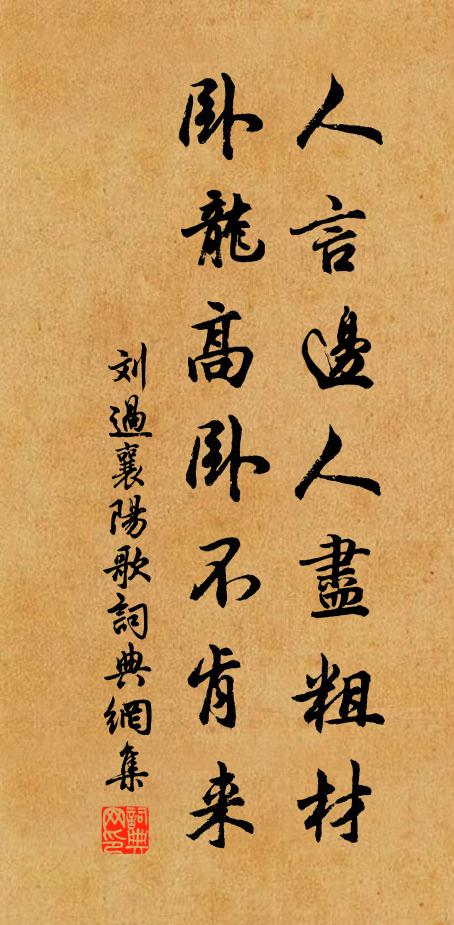 人言邊人盡粗材
卧龍高卧不肯来
刘過襄陽歌詞典網集
詞典网印